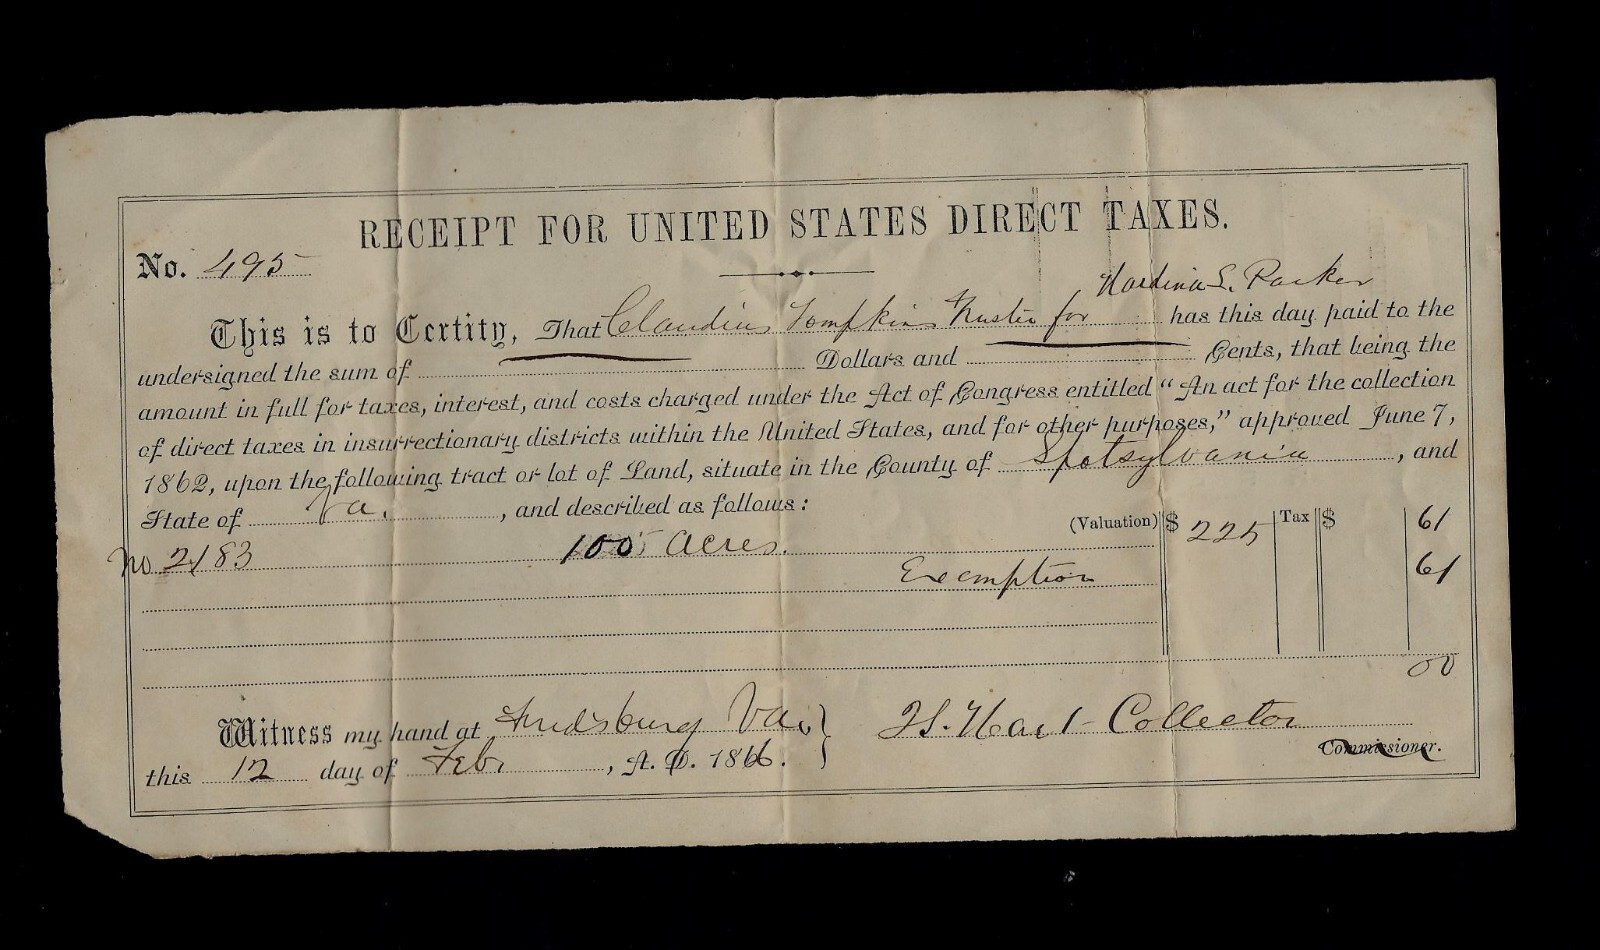 RECEIPT FOR UNITED STATES DIRECT TAXES.
No. 495
This is to Certify, That Claudius Tompkins Trustee for L. Parker has this day paid to the
undersigned the sum of Dollars and Cents, that being the
amount in full for taxes, interest, and costs charged under the Act of Congress entitled "An act for the collection
of direct taxes in insurrectionary districts within the United States, and for other purposes," approved June 7,
1862, upon the following tract or lot of Land, situate in the County of Spotsylvania, and
State of Va., and described as follows:
(Valuation) $ 225 Tax $ 61
No 2183 100 Acres.
Exemption 61
00
Witness my hand at Fredsburg Va.
this 12 day of Feb., A. D. 1866.
Hart Collector
Commissioner.